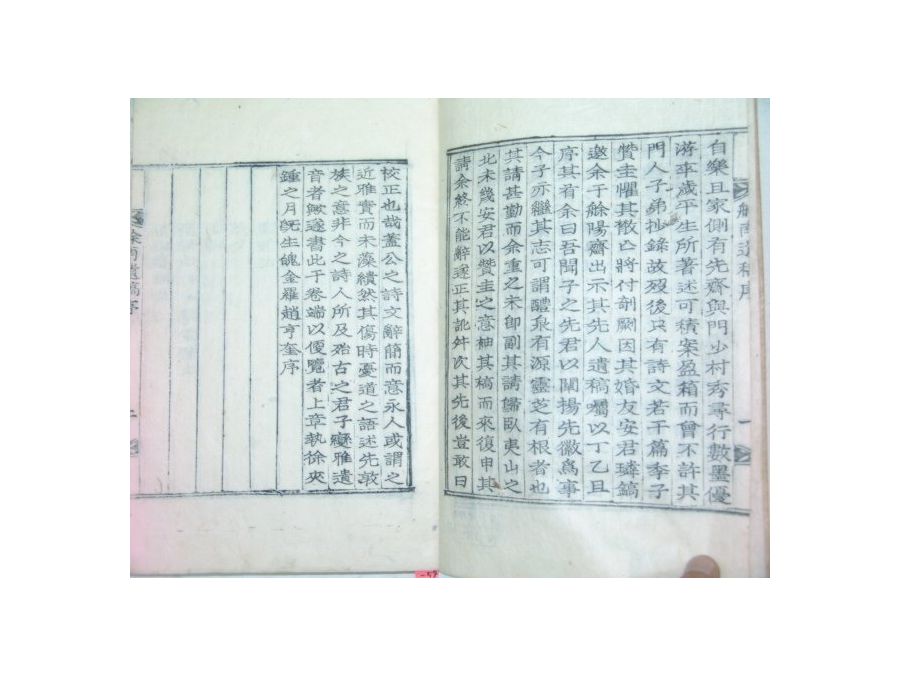 自樂且家側有先齋與門少村秀尋行數墨優
游卒歲平生所著述可積案盈箱而曾不許其
門人子弟抄錄故歿後只有詩文若干篇季子
贊圭懼其散亡將付剞劂因其婚友安君瑋鎬
邀余于艅陽齋出示其先人遺稿囑以丁乙且
序其首余曰吾聞子之先君以闡揚先徽爲事
今子亦繼其志可謂醴泉有源靈芝有根者也
其請甚勤而余重之未卽副其請歸臥夷山之
北未幾安君以贊圭之意袖其稿而來復申其
請余終不能辭遂正其訛舛次其先後豈敢曰
艅南遺稿序
一
校正也哉蓋公之詩文辭簡而意永人或謂之
近雅實而未藻繢然其傷時憂道之語述先敦
族之意非今之詩人所及殆古之君子變雅遺
音者歟遂書此于卷端以俟覽者上章執徐夾
鍾之月旣生魄金羅趙亨奎序
艅南遺稿序
二
-57